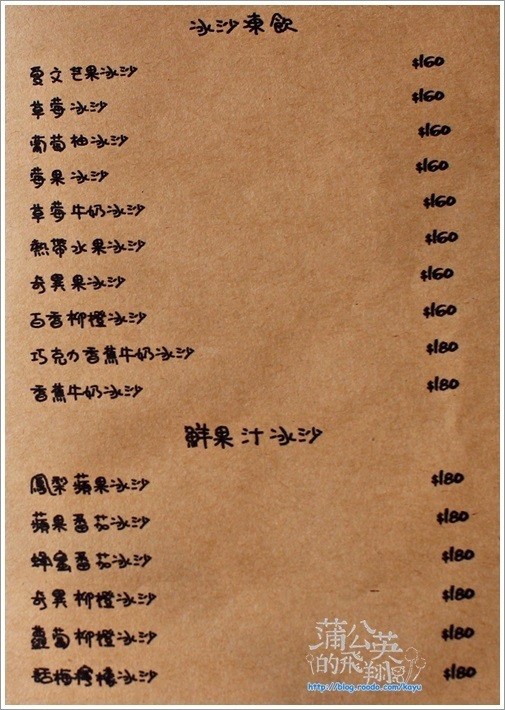 冰沙凍飲
愛文芒果冰沙 $160
草莓冰沙 $160
葡萄柚冰沙 $160
莓果冰沙 $160
草莓牛奶冰沙 $160
熱帶水果冰沙 $160
奇異果冰沙 $160
百香柳橙冰沙 $160
巧克力香蕉牛奶冰沙 $180
香蕉牛奶冰沙 $180
鮮果汁冰沙
鳳梨蘋果冰沙 $180
蘋果番茄冰沙 $180
蜂蜜番茄冰沙 $180
奇異柳橙冰沙 $180
蘿蔔柳橙冰沙 $180
話梅檸檬冰沙 $180
蒲公英
的飛翔
http://blog.roodo.com/kayu